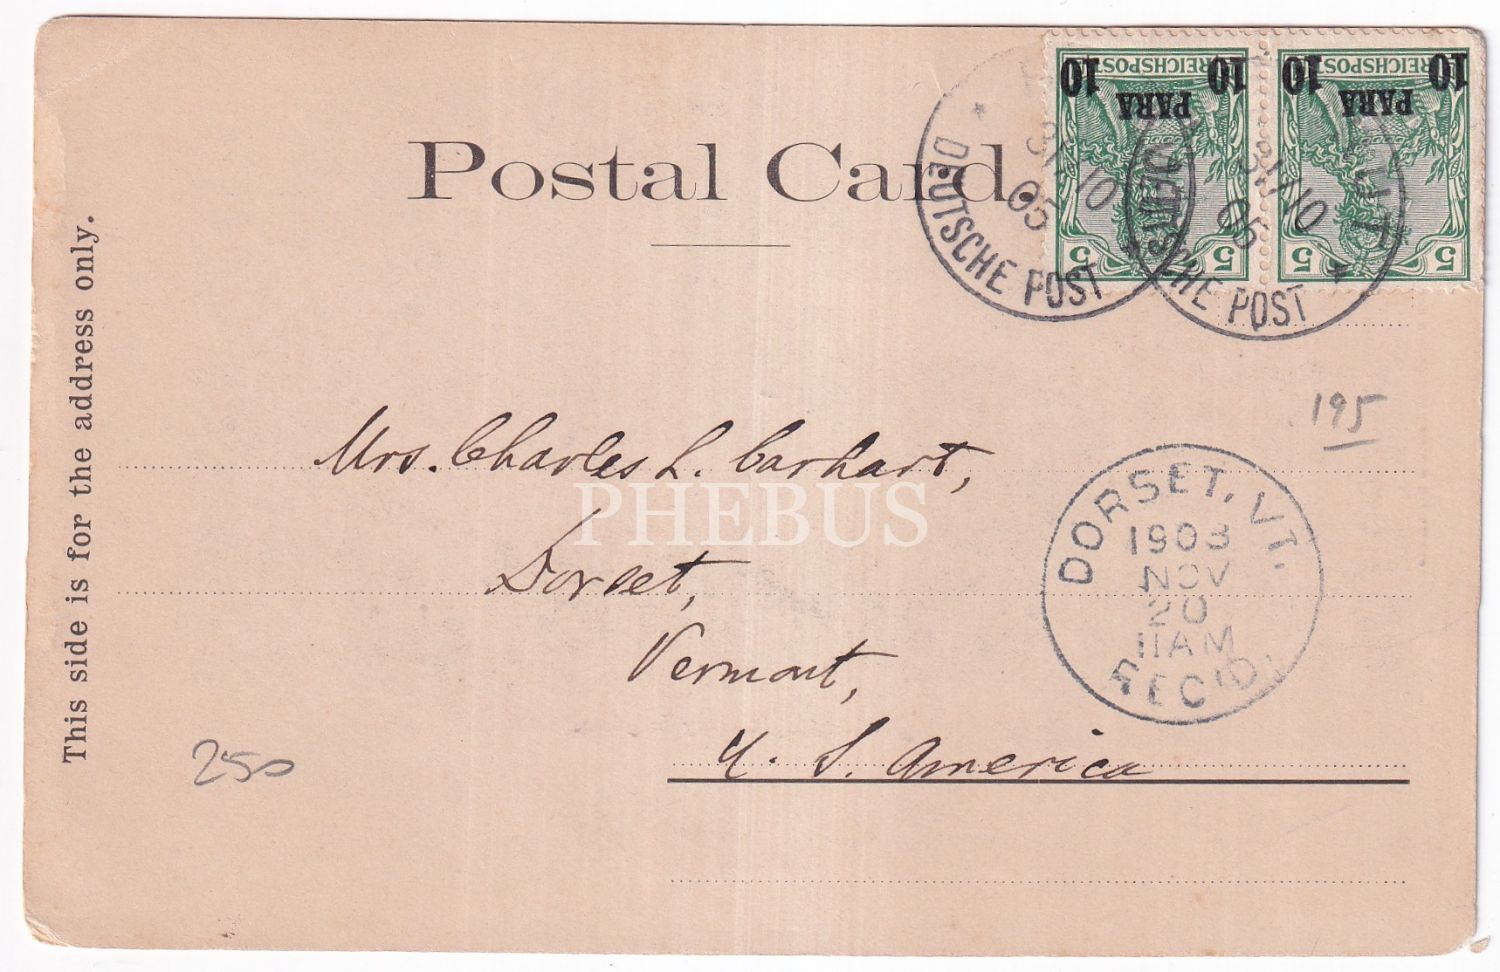 Postal Card.
This side is for the address only.
10 10
PARA
REICHSPOST
5 5
10 10
PARA
REICHSPOST
5 5
DEUTSCHE POST
31/10
05
DEUTSCHE POST
31/10
195
Mrs. Charles L. Carhart,
PHEBUS
Dorset,
Vermont,
U. S. America
DORSET, VT.
1903
NOV
20
11AM
REC'D.
250